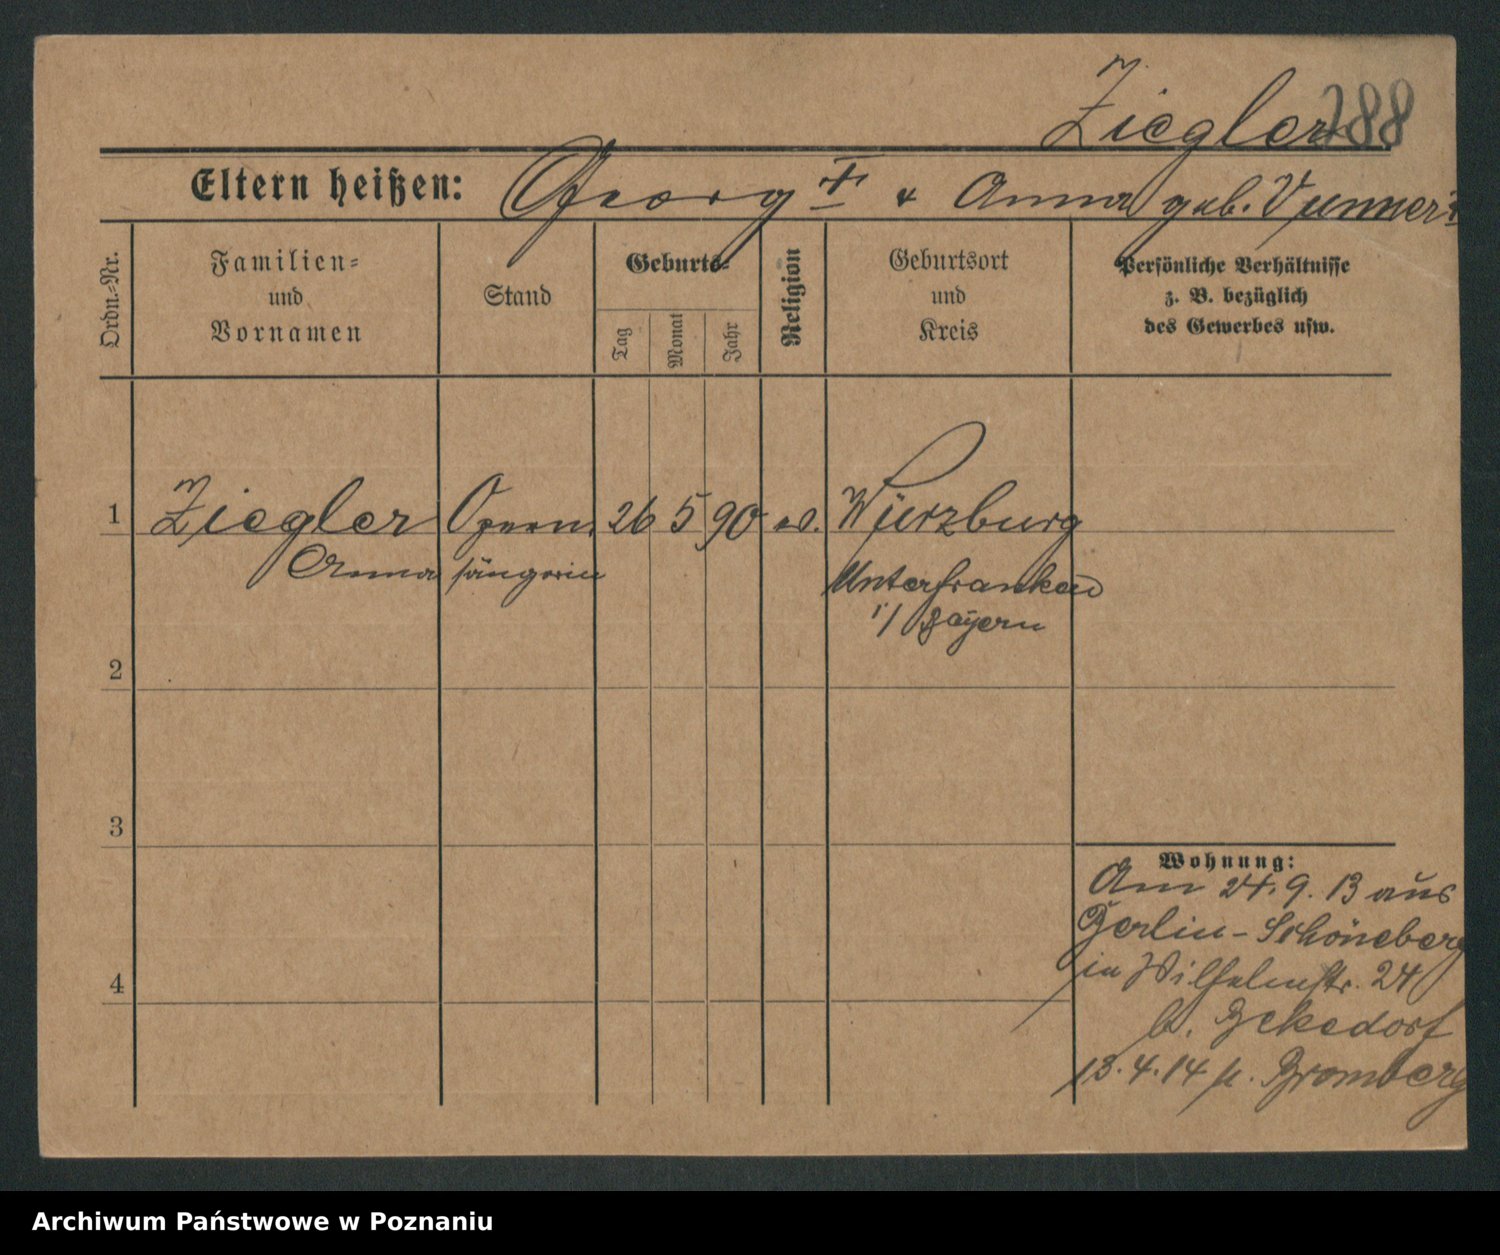 Ziegler 288
Eltern heißen: Georg I & Anna geb.
Ordn.=Nr.
Familien=
und
Vornamen
Stand
Geburts=
Tag
Monat
Jahr
Religion
Geburtsort
und
Kreis
Persönliche Verhältnisse
z. B. bezüglich
des Gewerbes usw.
1 Ziegler Opern 26 5 90 Würzburg
Anna sängerin Unterfranken
i/ Bayern
2
3
Wohnung:
Am 24. 9. 13 aus
Berlin-Schöneberg
in Wilhelmstr. 24
4
b.
13. 4. 14 n. Bromberg
Archiwum Państwowe w Poznaniu